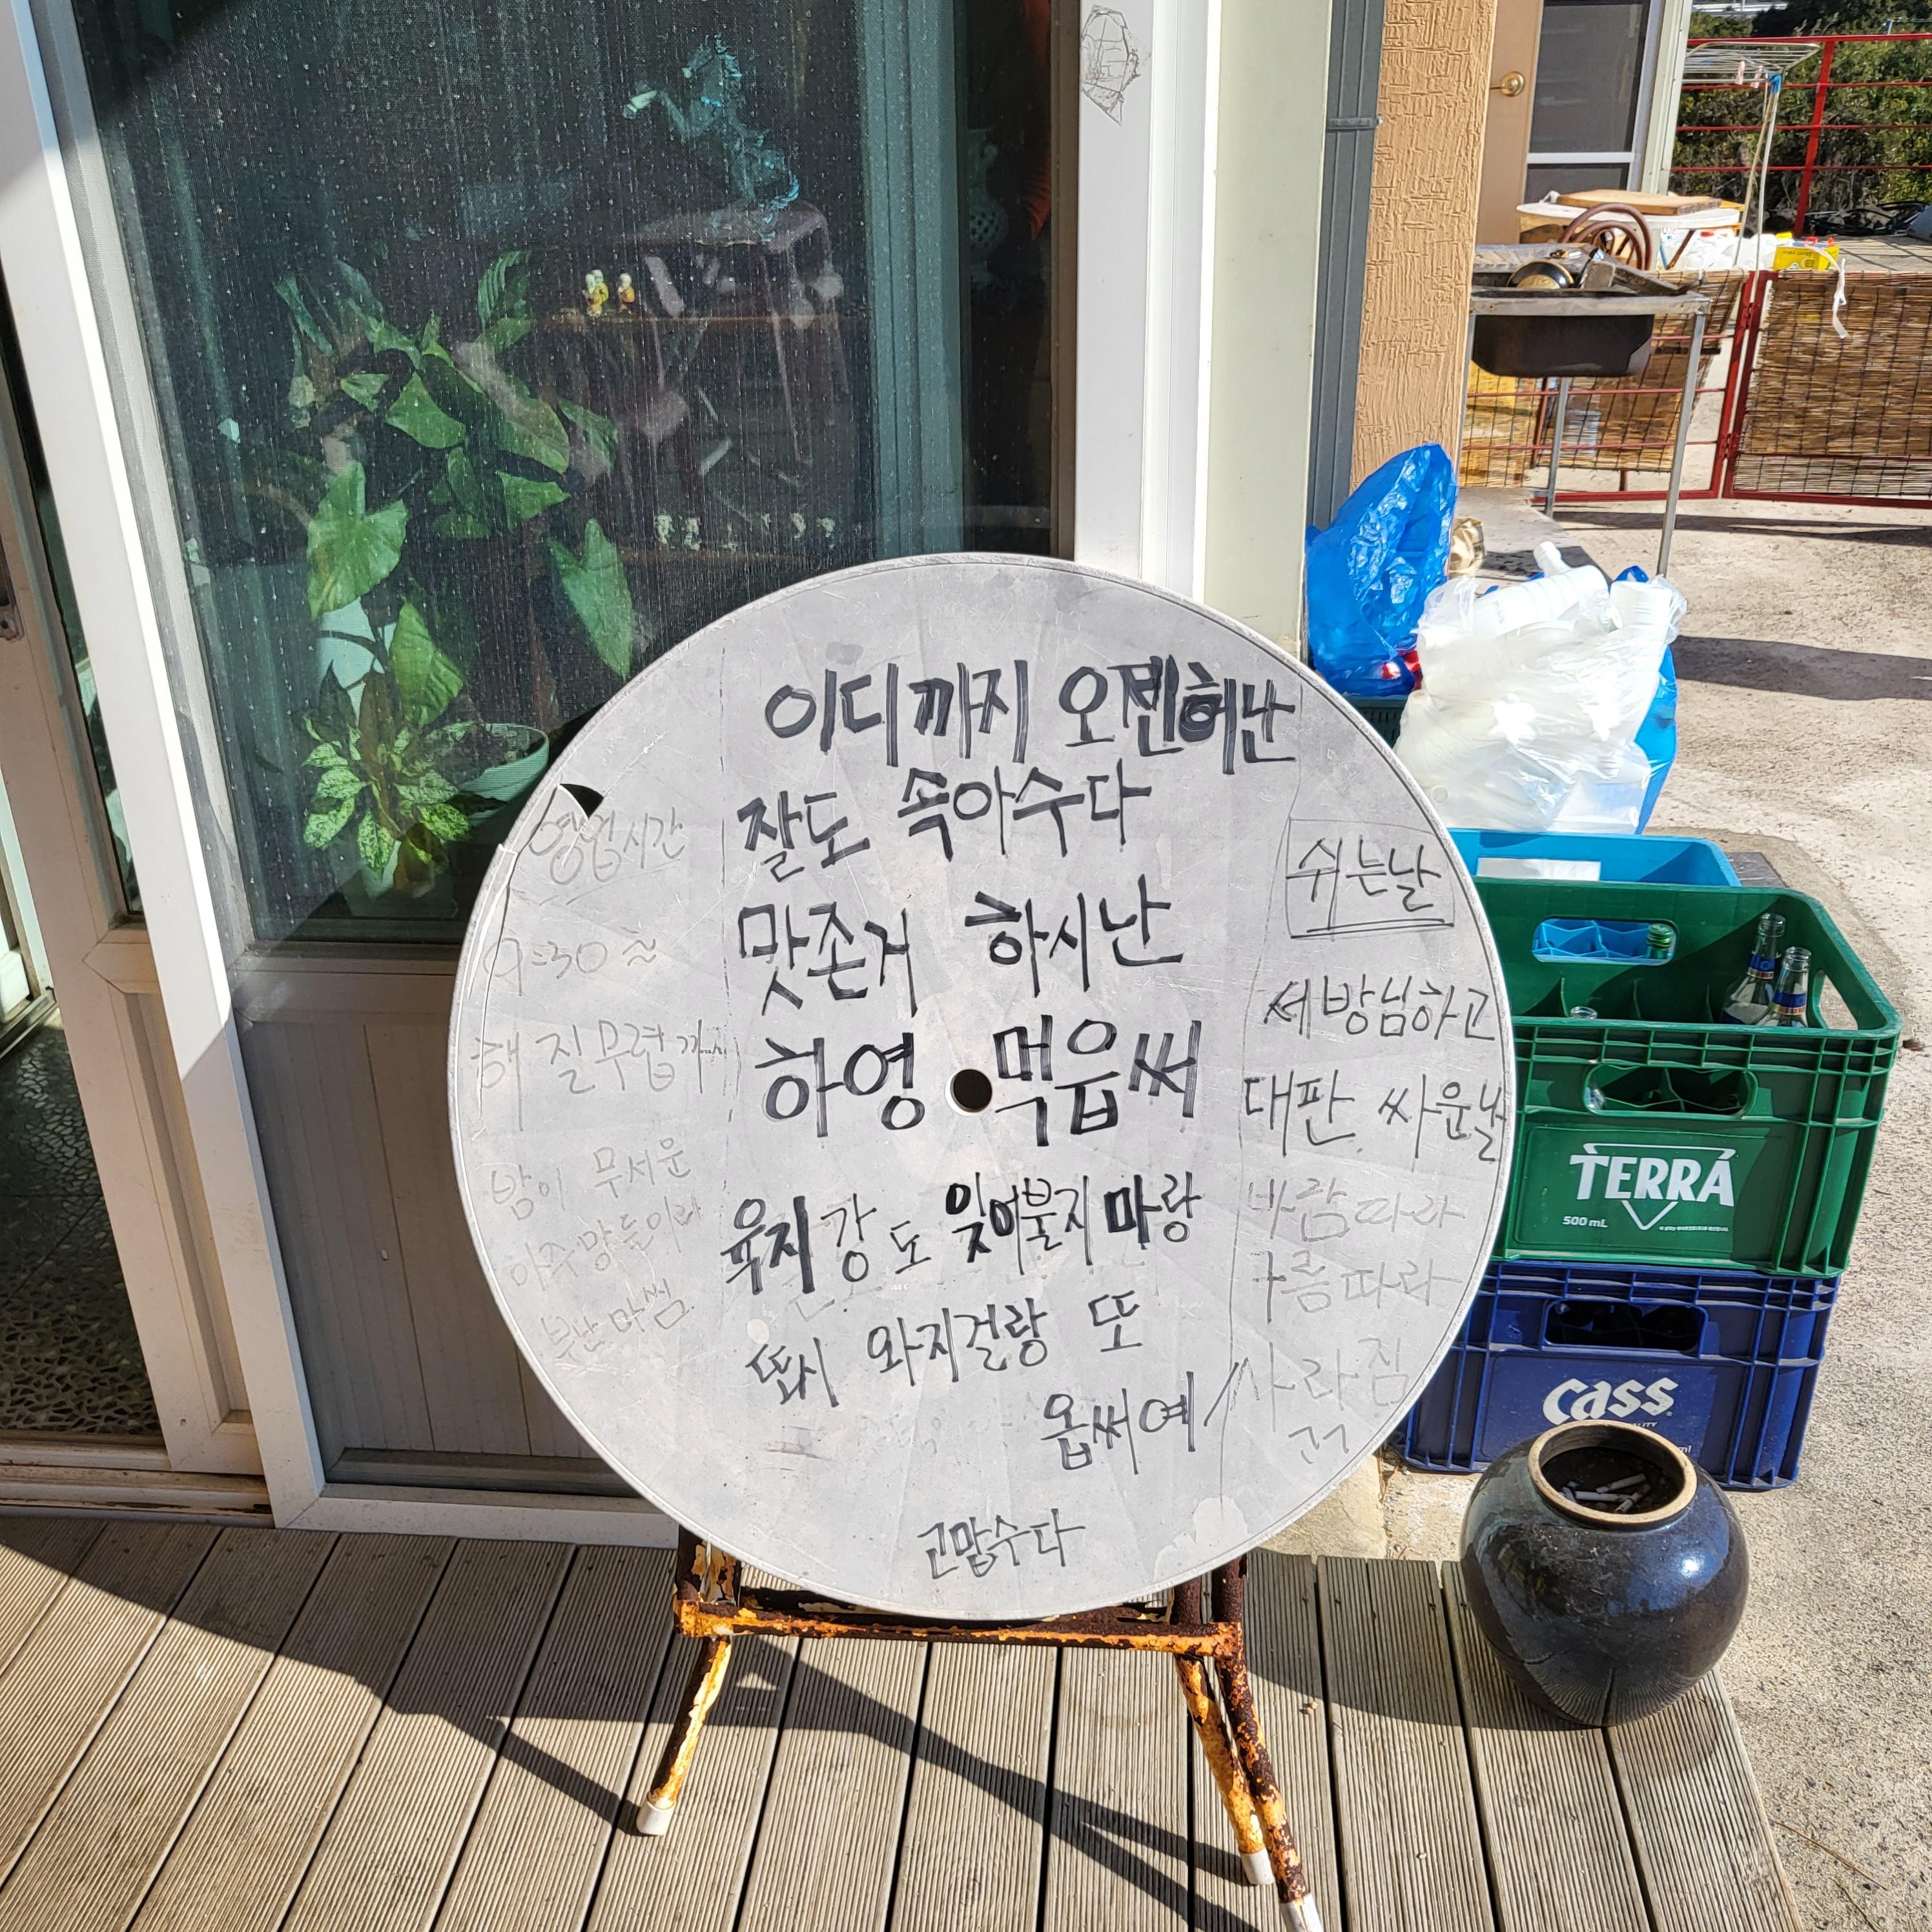 이디까지 오젠허난
잘도 속아수다
맛존거 하시난
하영 먹읍써
육지강도 잊어불지마랑
또시 와지걸랑 또
옵써예
고맙수다
영업시간
9:30 ~
해질무렵까지
밤이 무서운
아주망들이라
부난마씸
쉬는날
세방님하고
대판 싸운날
바람따라
구름따라
사라짐
ㅋㅋ
TERRA
500 mL
Cass